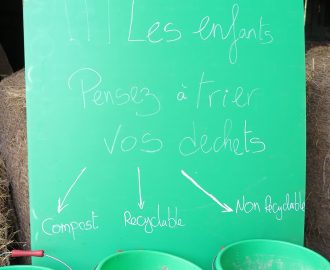 !!! Les enfants
Pensez à trier
vos dechets
Compost Recyclable Non Recyclable